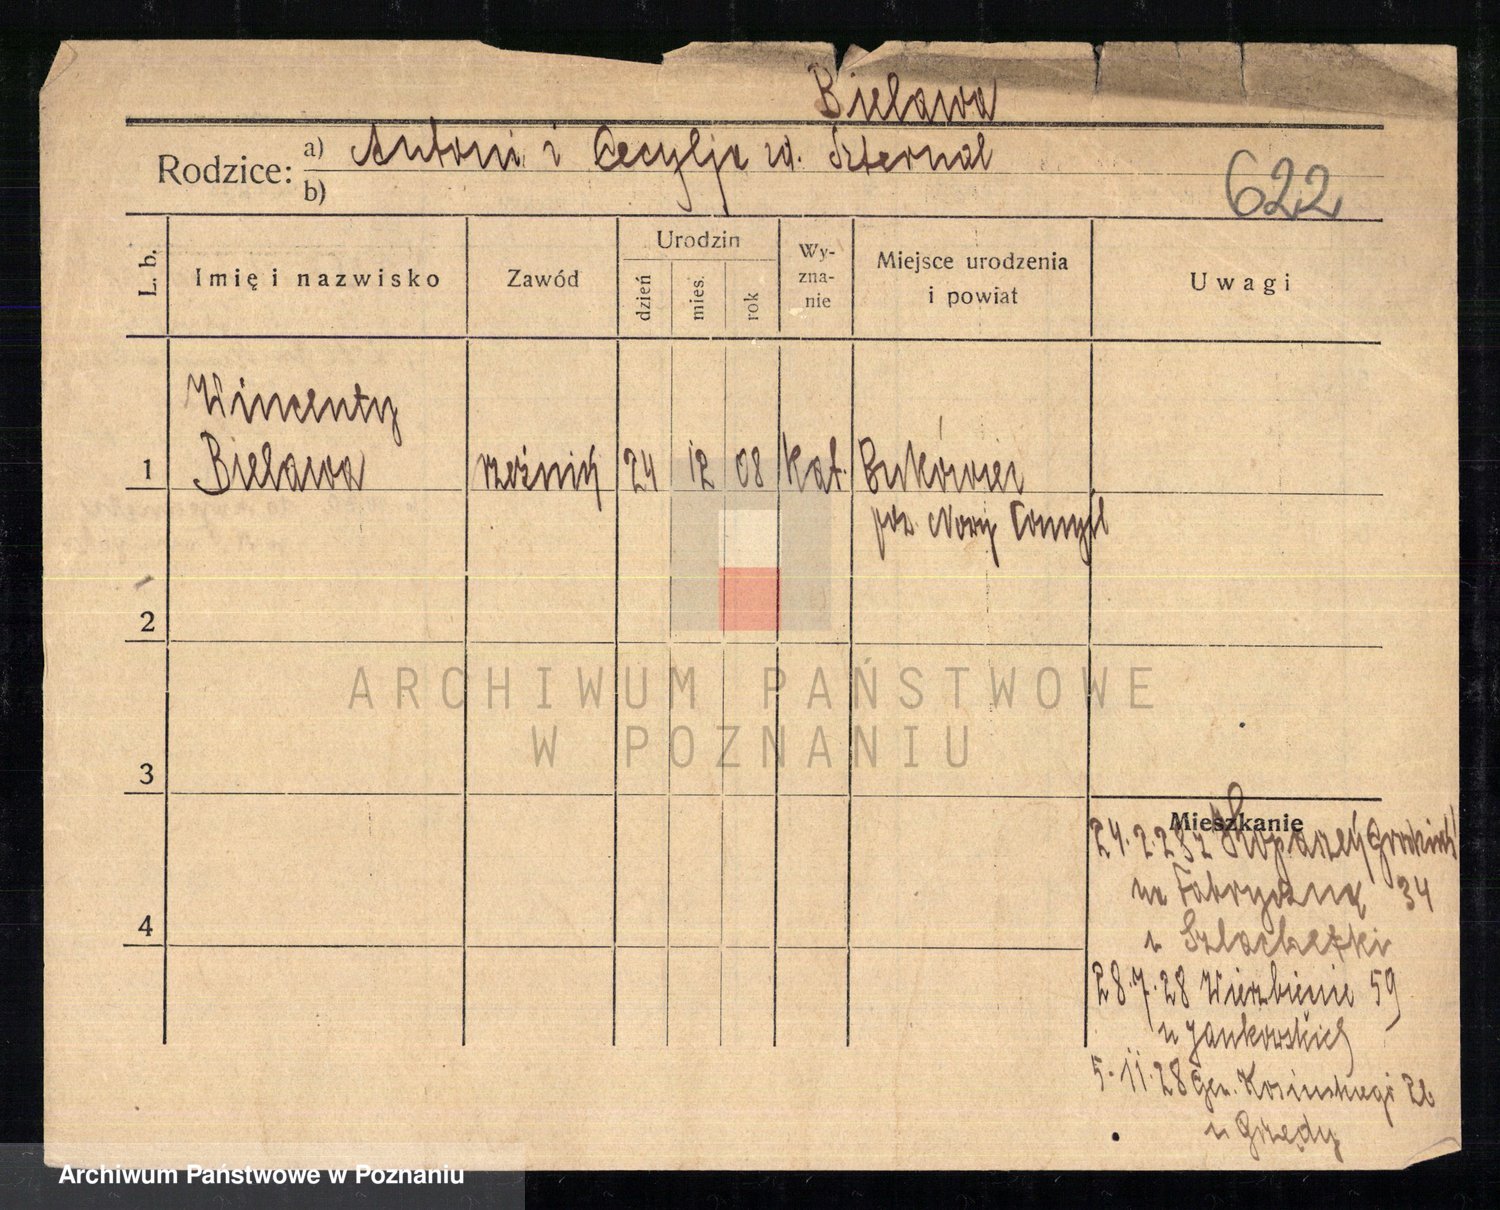 Bielawa
Rodzice: a) Antoni i Cecylja zd. Szternal
b)
622
L. b.
Imię i nazwisko
Zawód
Urodzin
dzień
mies.
rok
Wy-
zna-
nie
Miejsce urodzenia
i powiat
Uwagi
Wincenty
1 Bielawa rzeźnik 24 12 08 kat. Bukówiec
pow. Nowy Tomyśl
2
3
4
Mieszkanie
24.2.28 z Grodzisk
na Fabryczną 34
u Szlachetki
28.7.28 Wierzbięcie 59
u Jankowskich
5.11.28 Gen. Kosińskiego 26
u Grzędy
ARCHIWUM PAŃSTWOWE
W POZNANIU
Archiwum Państwowe w Poznaniu